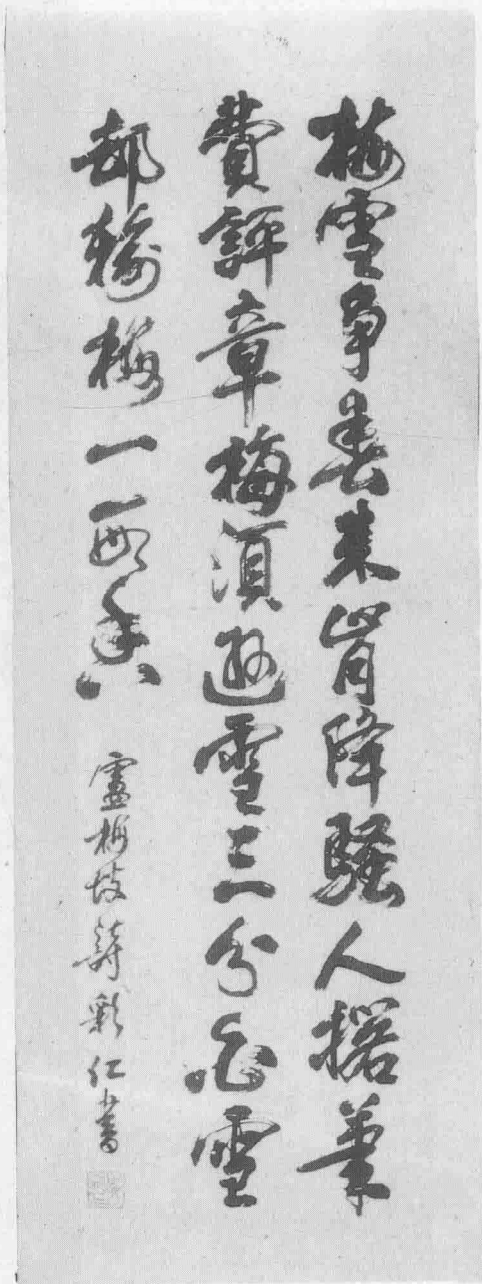 梅雪争春未肯降騷人擱筆
費評章梅須遜雪三分白雪
却輸梅一段香
盧梅坡詩彩仁書